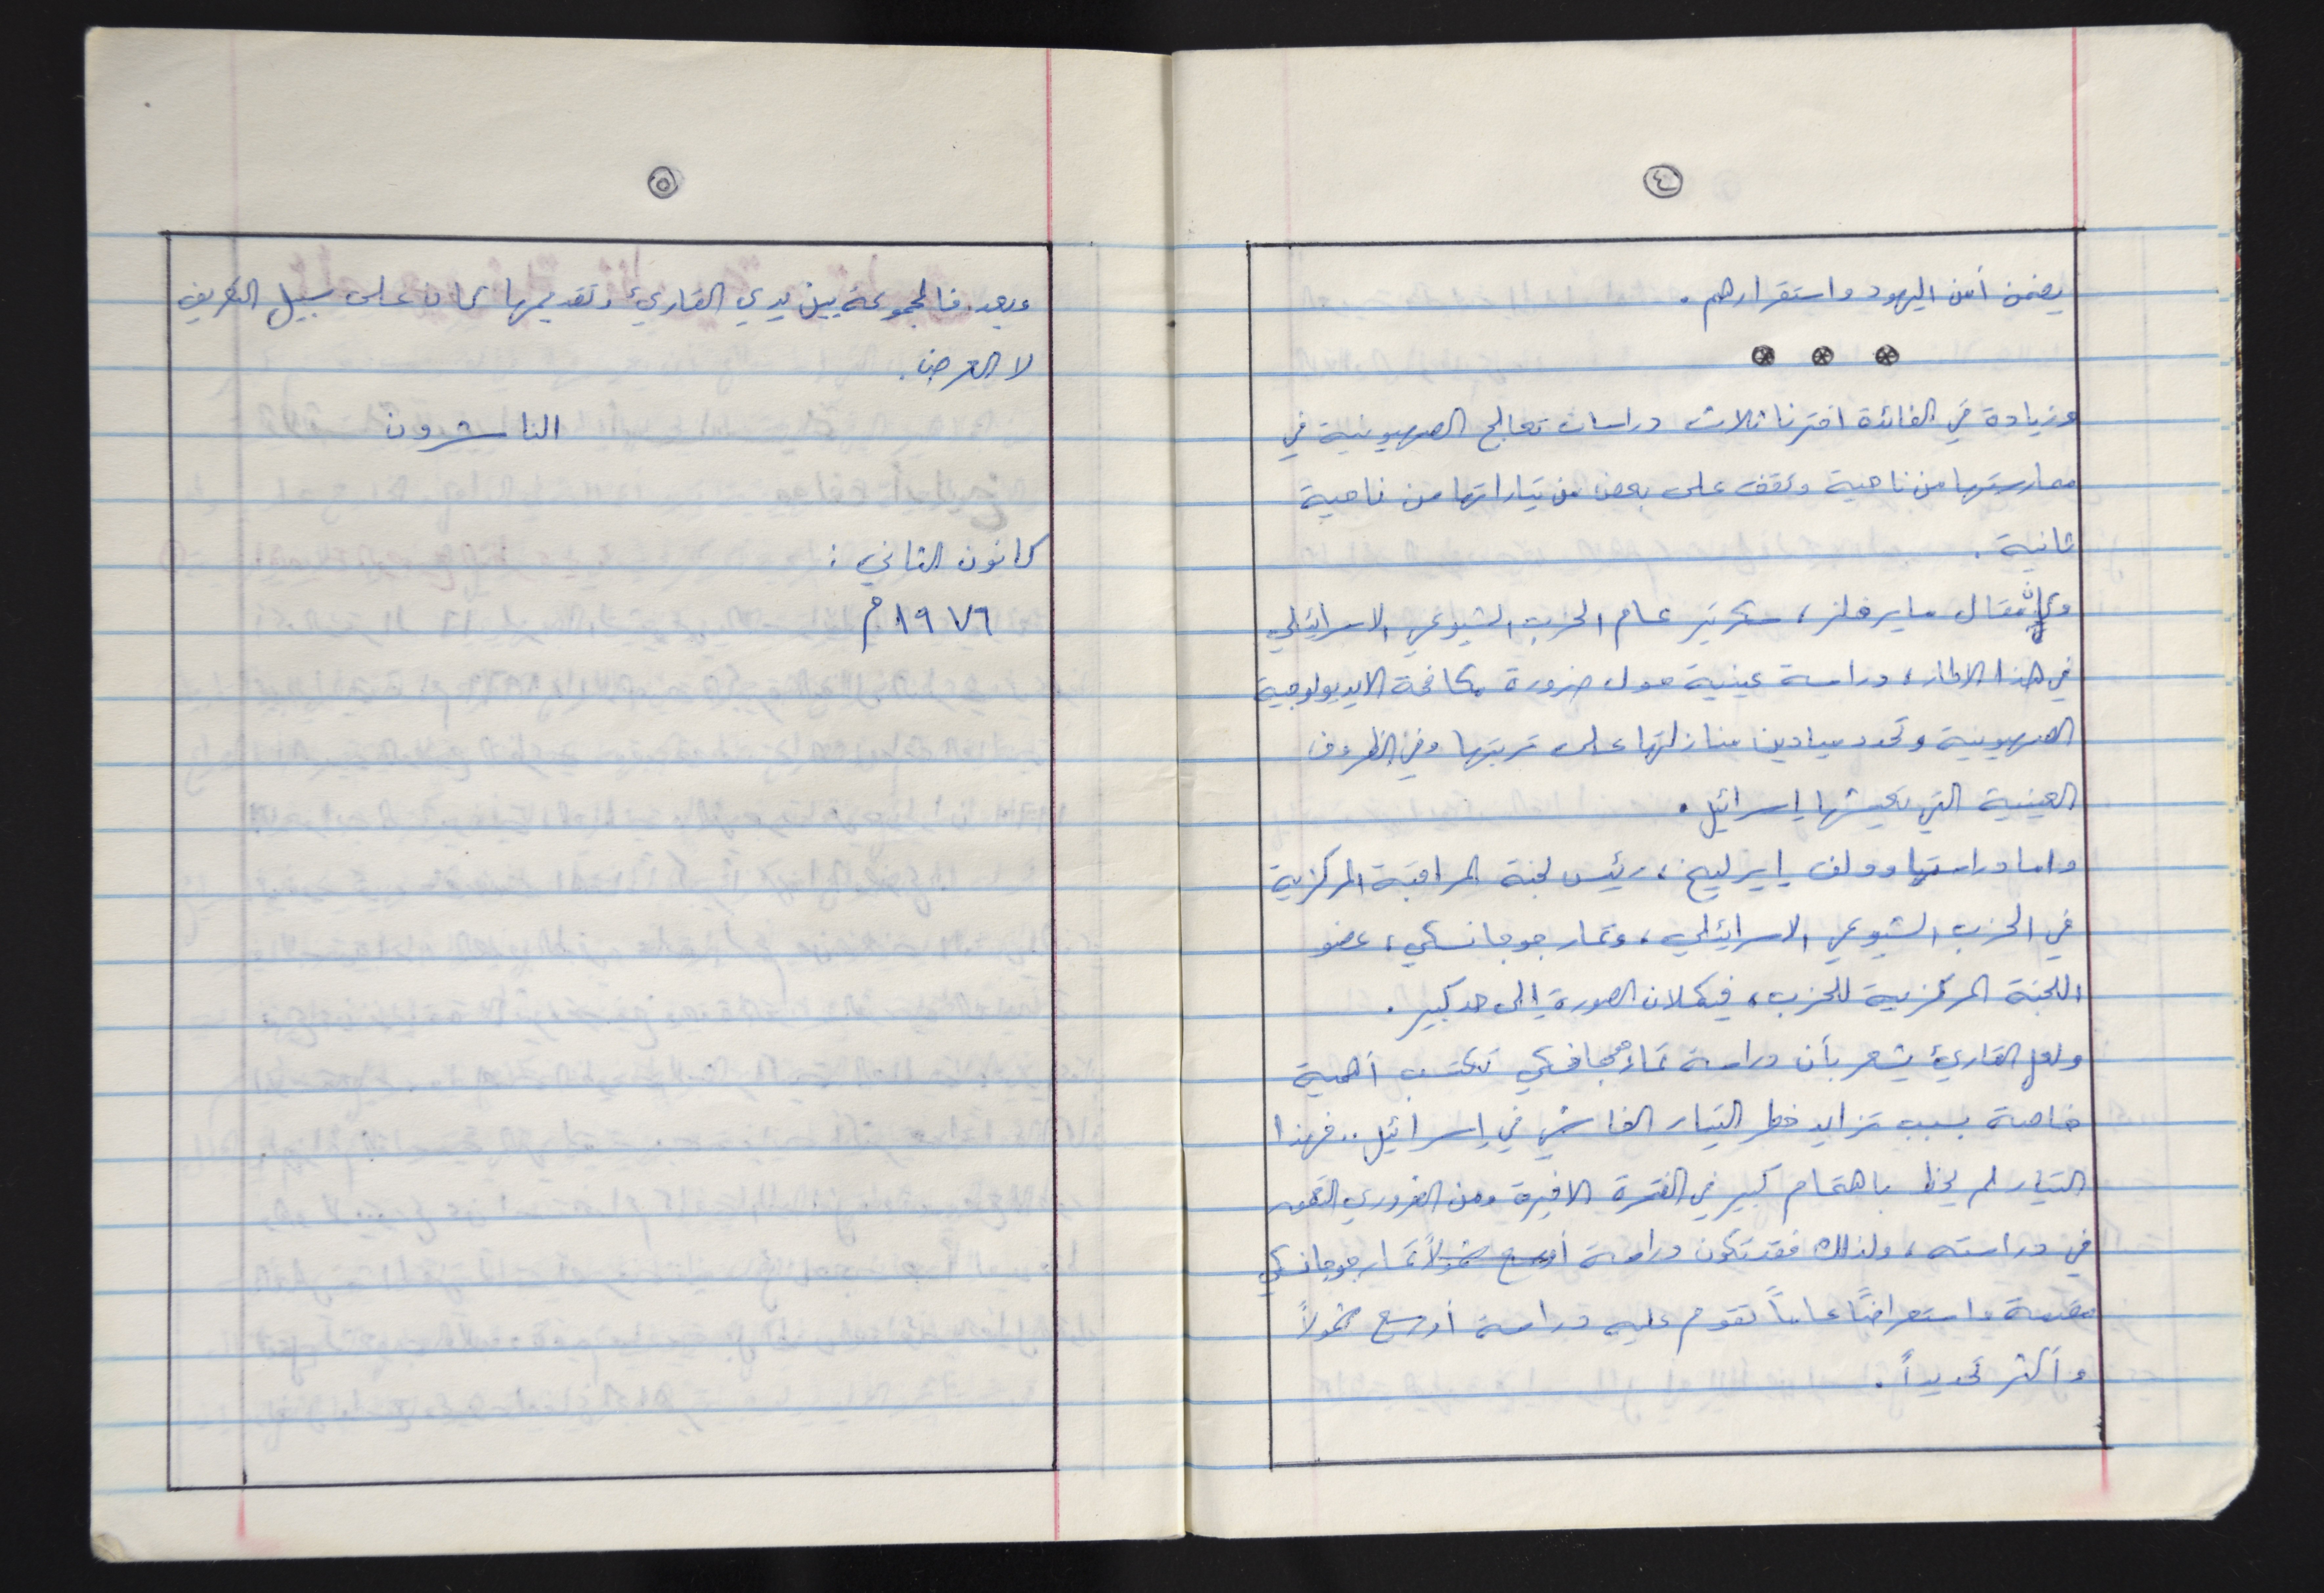 ٤
يضمن أمن اليهود واستقرارهم.
وزيادة في الفائدة اخترنا ثلاث دراسات تعالج الصهيونية في
ممارستها من ناحية وتقف على بعض من تياراتها من ناحية
ثانية.
مقال ماير فلنر، سكرتير عام الحزب الشيوعي الاسرائيلي
في هذا الاطار، دراسة عينية حول ضرورة مكافحة الايديولوجية
الصهيونية وتحدد ميادين منازلتها على تربتها وفي الظروف
العينية التي تعيشها إسرائيل.
واما دراستا وولف إيرليخ، رئيس لجنة المراقبة المركزية
في الحزب الشيوعي الاسرائيلي، وتمار جوجانسكي، عضو
اللجنة المركزية للحزب، فيكملان الصورة إلى حد كبير.
ولعل القاريء يشعر بأن دراسة تمار جوجانسكي تكتسب أهمية
خاصة بسبب تزايد خطر التيار الفاشي في إسرائيل.. فهذا
التيار لم يحظ باهتمام كبير في الفترة الاخيرة ومن الضروري التعمق
في دراسته، ولذلك فقد تكون دراسة أوسع شمولاً تمار جوجانسكي
مقدمة واستعراضًا عاماً تقوم عليه دراسة أوسع شمولاً
وأكثر تحديداً.
٥
وبعد. فالمجموعة بين يدي القاريء وتقديمها كان على سبيل التعريف
لا العرض.
الناشرون
كانون الثاني:
١٩٧٦م